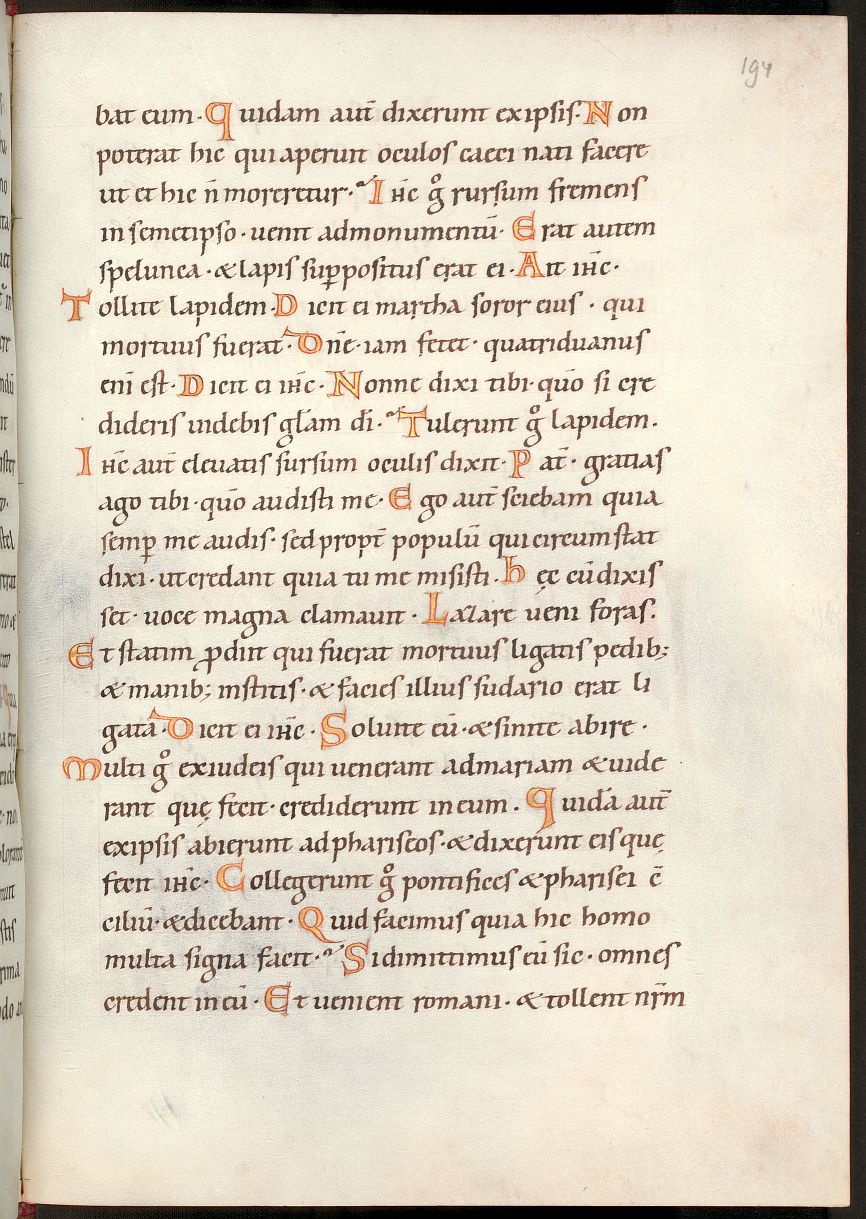 194
bat eum · Quidam aut̄ dixerunt exipsis · Non
poterat hic qui aperuit oculos caeci nati facere
ut et hic n̄ moreretur · Ihc̄ gͦ rursum fremens
in semetipso · uenit admonumentū · Erat autem
spelunca · & lapis suppositus erat ei · Ait ihc̄ ·
Tollite lapidem · Dicit ei martha soror eius · qui
mortuus fuerat · Dn̄e · iam fetet · quatriduanus
eni est · Dicit ei ihc̄ · Nonne dixi tibi · quō si cre
dideris uidebis gl̄am dī · Tulerunt gͦ lapidem .
Ihc̄ aut̄ eleuatis sursum oculis dixit · Pat̄ · gratias
ago tibi · quō audisti me · Ego aut̄ sciebam quia
semp̄ me audis · sed propt̄ populū qui circumstat
dixi · ut credant quia tu me misisti · hęc cū dixis
set · uoce magna clamauit · Lazare ueni foras .
Et statim ꝓdiit qui fuerat mortuus ligatis pedib;
& manib; institis · & facies illius sudario erat li
gata · Dicit ei ihc̄ · Soluite eū · & sinite abire ·
Multi gͦ exiudeis qui uenerant admariam & uide
rant quę fecit · crediderunt in eum . Quidā aut̄
exipsis abierunt ad phariseos · & dixerunt eis quę
fecit ihc̄ · Collegerunt gͦ pontifices & pharisei c̄
ciliū · & dicebant · Quid facimus quia hic homo
multa signa facit · Si dimittimus eū sic · omnes
credent in eū · Et uenient romani · & tollent nr̄m